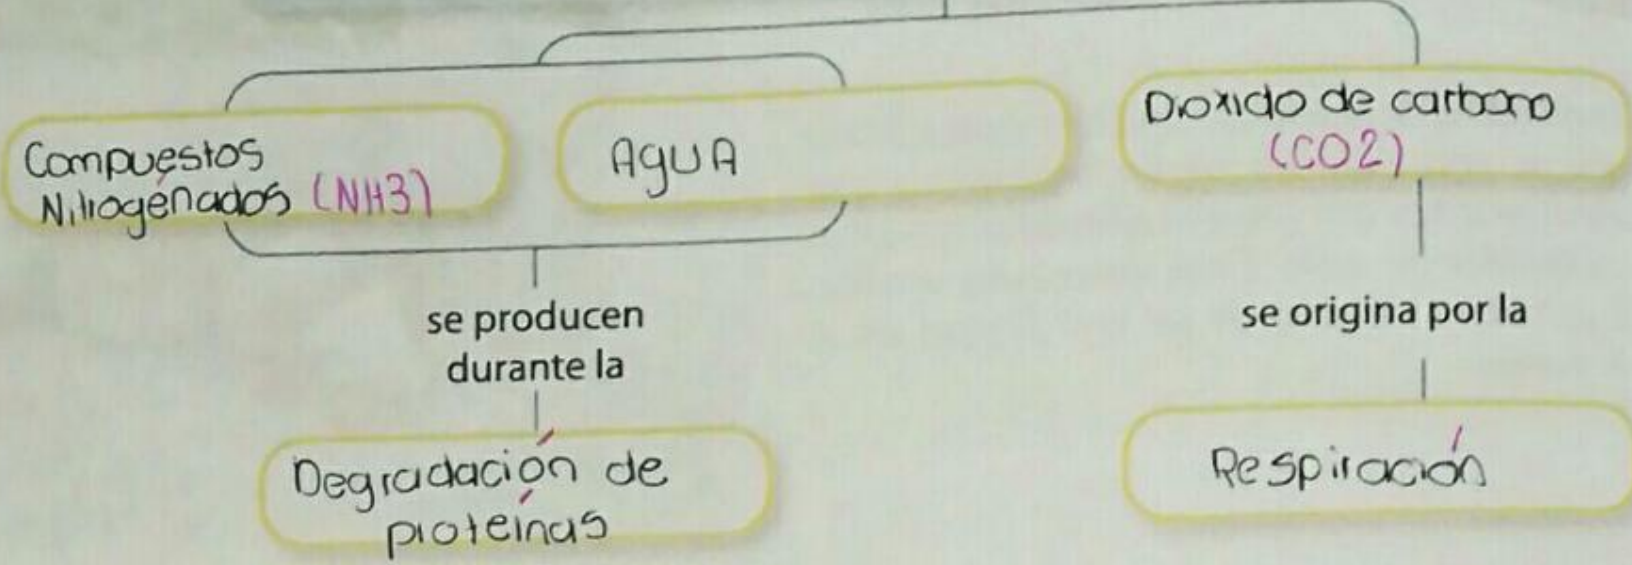 Compuestos
Nitrogénados (NH3)
AgUA
Dioxido de carbono
(CO2)
se producen
durante la
se origina por la
Degradación de
proteínas
Respiración